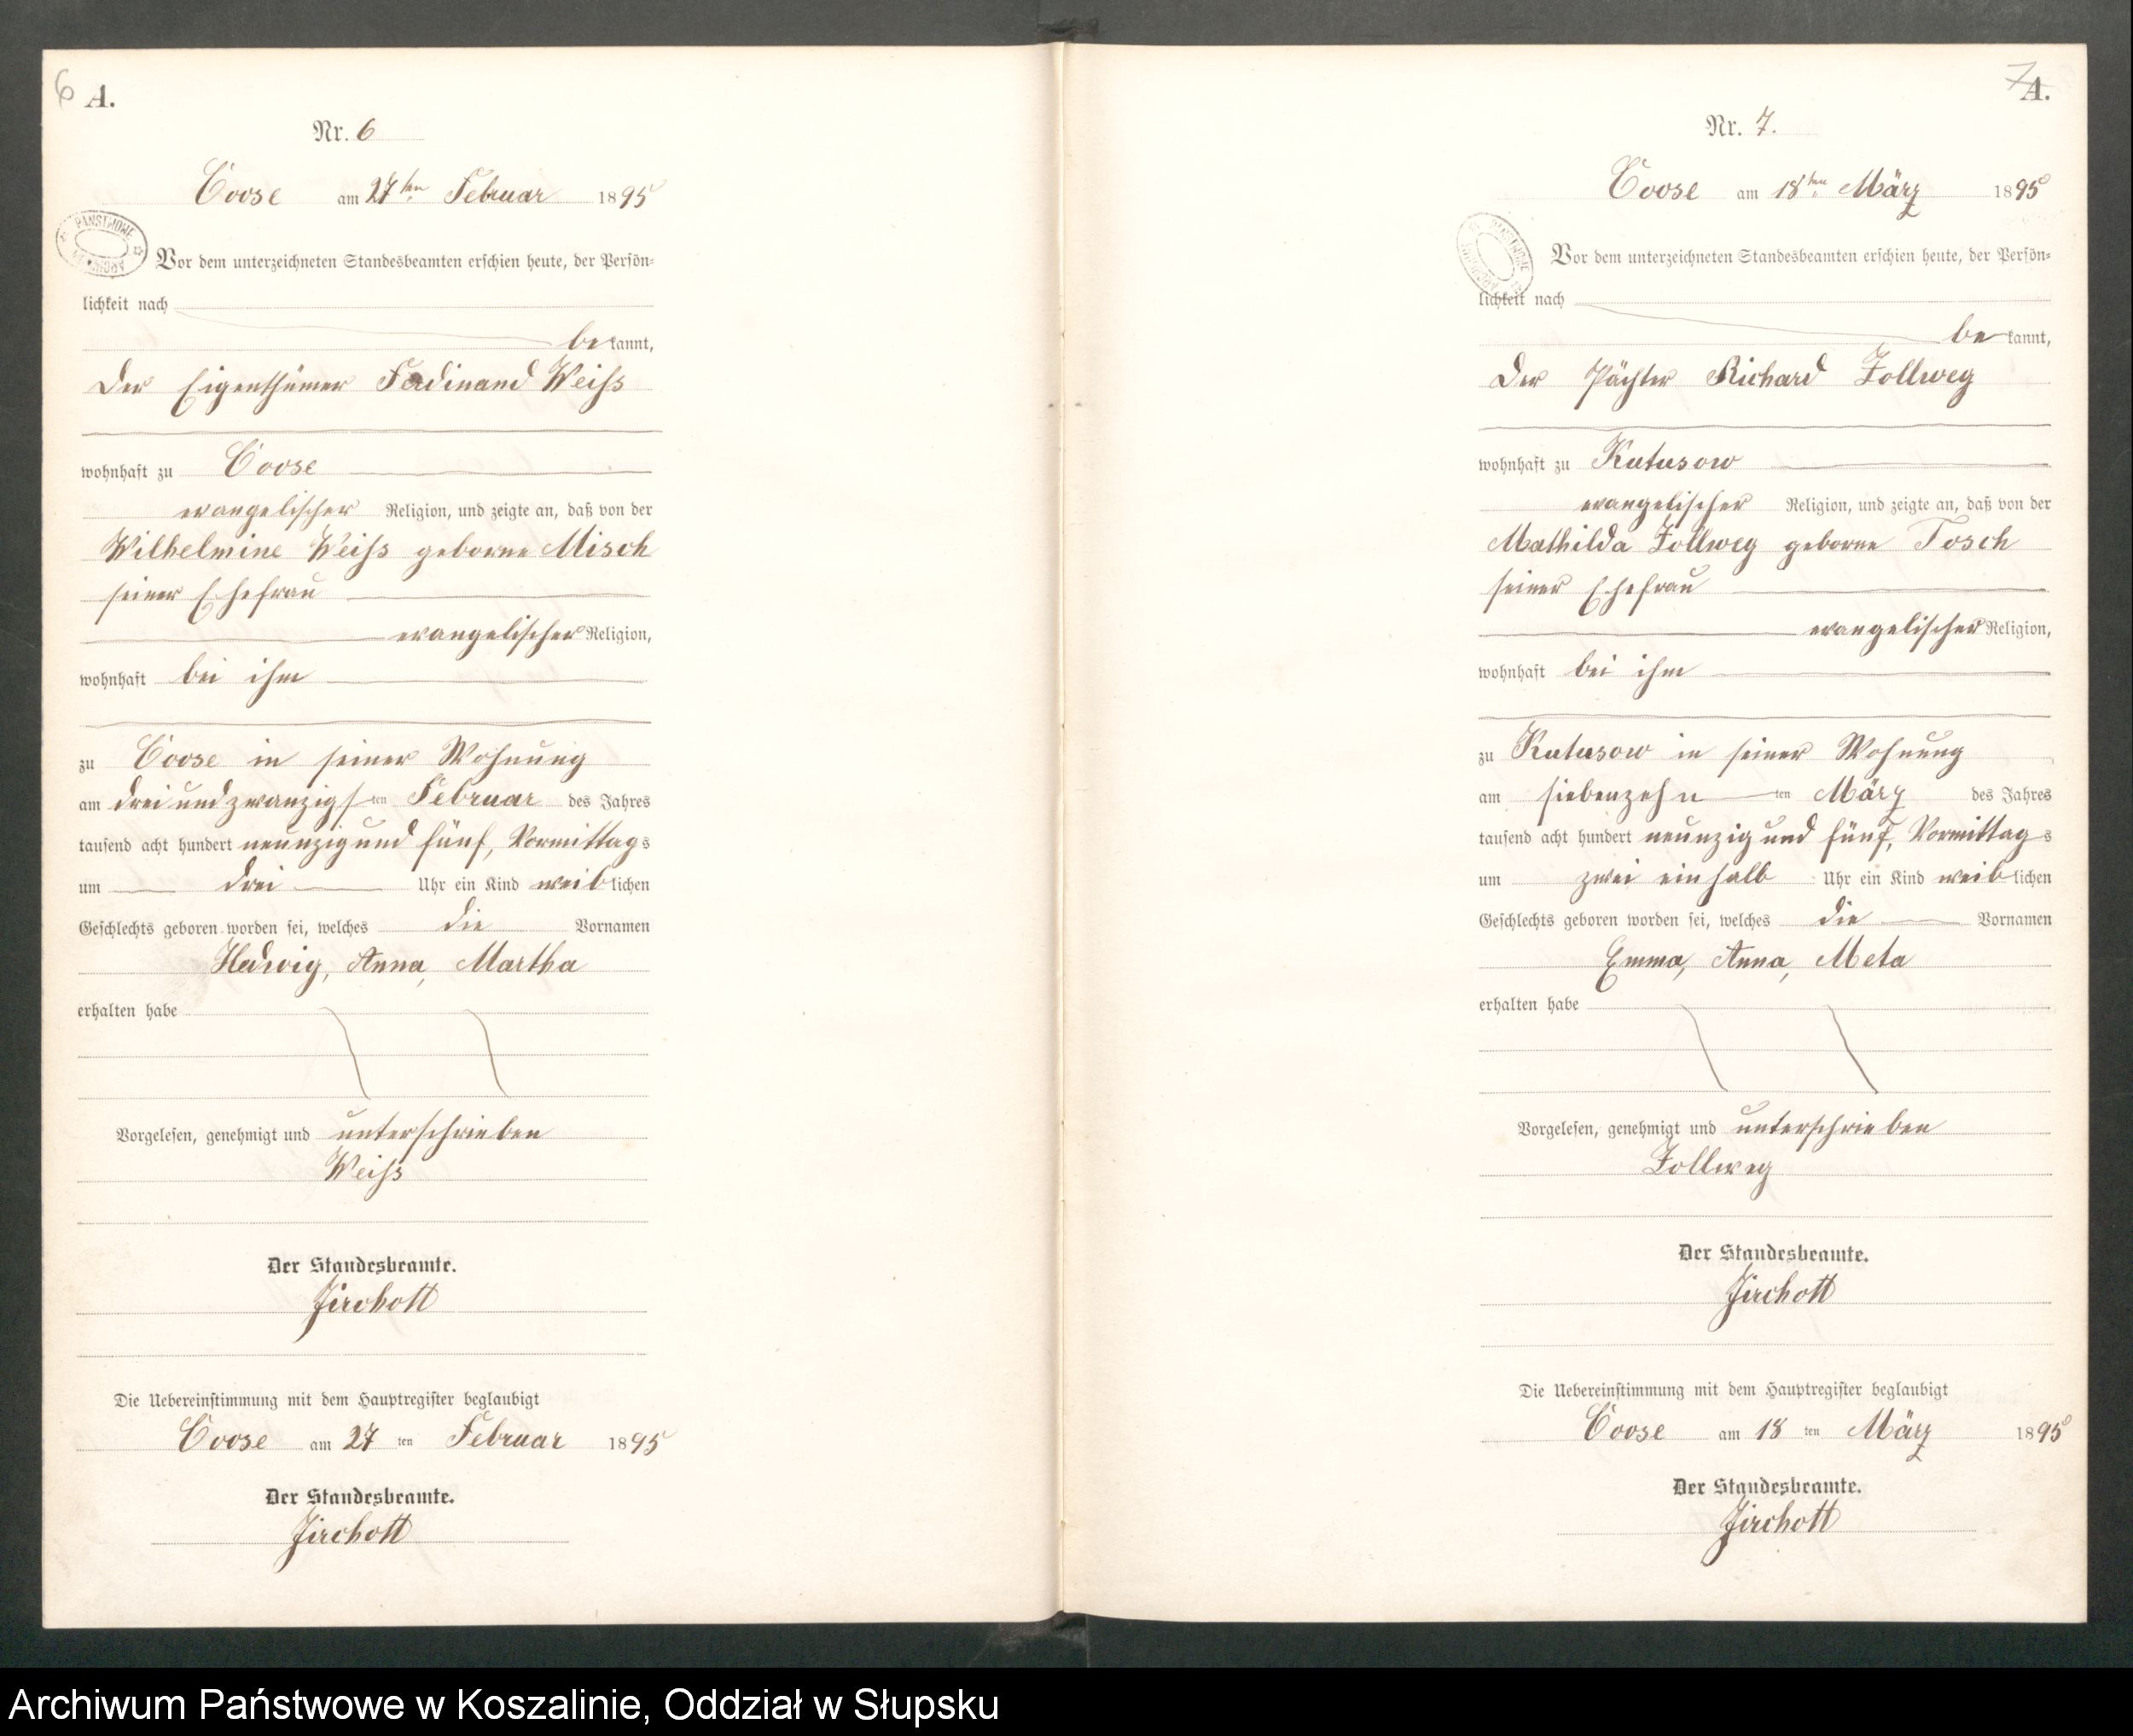 6 A.
Nr. 6
Coose am 27ten Februar 1895
Vor dem unterzeichneten Standesbeamten erschien heute, der Persön=
lichkeit nach
bekannt,
der Eigenthümer Ferdinand Weiß
wohnhaft zu Coose
evangelischer Religion, und zeigte an, daß von der
Wilhelmine Weiß geborne Misch
seiner Ehefrau
evangelischer Religion,
wohnhaft bei ihm
zu Coose in seiner Wohnung
am dreiundzwanzigsten Februar des Jahres
tausend acht hundert neunzig und fünf, Vormittags
um drei Uhr ein Kind weiblichen
Geschlechts geboren worden sei, welches die Vornamen
Hedwig, Anna, Martha
erhalten habe
Vorgelesen, genehmigt und unterschrieben
Weiß
Der Standesbeamte.
Zirchott
Die Uebereinstimmung mit dem Hauptregister beglaubigt
Coose am 27ten Februar 1895
Der Standesbeamte.
Zirchott
7 A.
Nr. 7.
Coose am 18ten März 1895
Vor dem unterzeichneten Standesbeamten erschien heute, der Persön=
lichkeit nach
bekannt,
der Pächter Richard Zollweg
wohnhaft zu Kutusow
evangelischer Religion, und zeigte an, daß von der
Mathilda Zollweg geborne Tosch
seiner Ehefrau
evangelischer Religion,
wohnhaft bei ihm
zu Kutusow in seiner Wohnung
am siebenzehnten März des Jahres
tausend acht hundert neunzig und fünf, Vormittags
um zwei einhalb Uhr ein Kind weiblichen
Geschlechts geboren worden sei, welches die Vornamen
Emma, Anna, Meta
erhalten habe
Vorgelesen, genehmigt und unterschrieben
Zollweg
Der Standesbeamte.
Zirchott
Die Uebereinstimmung mit dem Hauptregister beglaubigt
Coose am 18ten März 1895
Der Standesbeamte.
Zirchott
Archiwum Państwowe w Koszalinie, Oddział w Słupsku